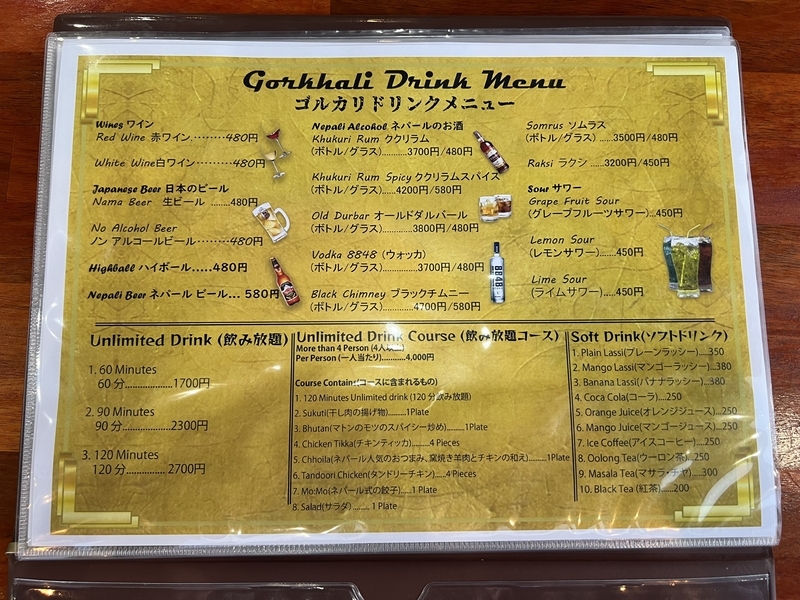 Gorkhali Drink Menu
ゴルカリドリンクメニュー
Wines ワイン
Red Wine 赤ワイン.........480円
White Wine白ワイン.........480円
Japanese Beer 日本のビール
Nama Beer 生ビール ........480円
No Alcohol Beer
ノン アルコールビール.........480円
Highball ハイボール.....480円
Nepali Beer ネパール ビール... 580円
Nepali Alcohol ネパールのお酒
Khukuri Rum ククリラム
(ボトル/グラス)............3700円/480円
Khukuri Rum Spicy ククリラムスパイス
(ボトル/グラス)......4200円/580円
Old Durbar オールドダルバール
(ボトル/グラス)............3800円/480円
Vodka 8848 (ウォッカ)
(ボトル/グラス)..............3700円/480円
Black Chimney ブラックチムニー
(ボトル/グラス).............4700円/580円
Somrus ソムラス
(ボトル/グラス) .....3500円/480円
Raksi ラクシ ......3200円/450円
Sour サワー
Grape Fruit Sour
(グレープフルーツサワー)...450円
Lemon Sour
(レモンサワー)......450円
Lime Sour
(ライムサワー).....450円
8848
Unlimited Drink (飲み放題)
1. 60 Minutes
60 分................1700円
2. 90 Minutes
90 分................2300円
3. 120 Minutes
120 分............... 2700円
Unlimited Drink Course (飲み放題コース)
More than 4 Person (4人以上)
Per Person (一人当たり)..........4,000円
Course Contains(コースに含まれるもの)
1. 120 Minutes Unlimited drink (120 分飲み放題)
2. Sukuti(干し肉の揚げ物).........1Plate
3. Bhutan(マトンのモツのスパイシー炒め).........1Plate
4. Chicken Tikka(チキンティッカ)........4 Pieces
5. Chhoila(ネパール人気のおつまみ、窯焼き羊肉とチキンの和え).........1Plate
6. Tandoori Chicken(タンドリーチキン).....4 Pieces
7. Mo:Mo(ネパール式の餃子).....1 Plate
8. Salad(サラダ)........ 1 Plate
Soft Drink(ソフトドリンク)
1. Plain Lassi(プレーンラッシー)....350
2. Mango Lassi(マンゴーラッシー)....380
3. Banana Lassi(バナナラッシー)...380
4. Coca Cola(コーラ)....250
5. Orange Juice(オレンジジュース)....250
6. Mango Juice(マンゴージュース)....250
7. Ice Coffee(アイスコーヒー)....250
8. Oolong Tea(ウーロン茶)....250
9. Masala Tea(マサラ・チヤ).....300
10. Black Tea (紅茶)......200